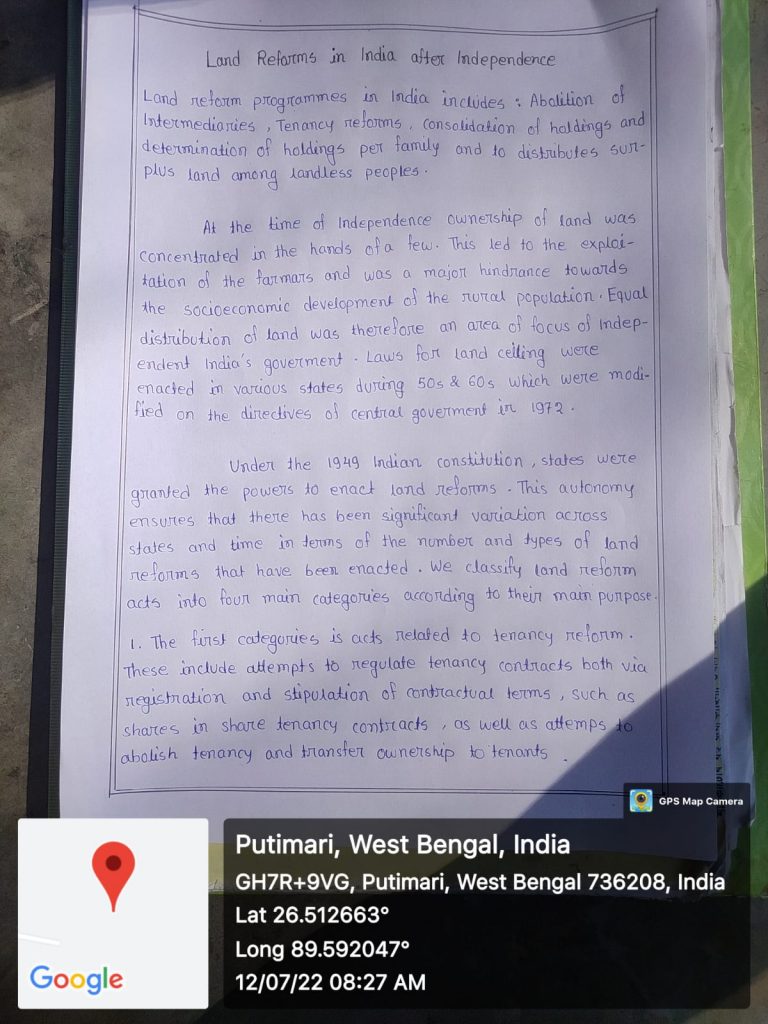 Land Reforms in India after Independence
Land reform programmes in India includes : Abolition of
Intermediaries, Tenancy reforms, consolidation of holdings and
determination of holdings per family and to distributes sur-
plus land among landless peoples.
At the time of Independence ownership of land was
concentrated in the hands of a few. This led to the exploi-
tation of the farmars and was a major hindrance towards
the socioeconomic development of the rural population. Equal
distribution of land was therefore an area of focus of Indep-
endent India's goverment. Laws for land ceiling were
enacted in various states during 50s & 60s which were modi-
fied on the directives of central goverment in 1972.
Under the 1949 Indian constitution, states were
granted the powers to enact land reforms. This autonomy
ensures that there has been significant variation across
states and time in terms of the number and types of land
reforms that have been enacted. We classify land reform
acts into four main categories according to their main purpose.
1. The first categories is acts related to tenancy reform.
These include attempts to regulate tenancy contracts both via
registration and stipulation of contractual terms, such as
shares in share tenancy contracts, as well as attemps to
abolish tenancy and transfer ownership to tenants.
GPS Map Camera
Putimari, West Bengal, India
GH7R+9VG, Putimari, West Bengal 736208, India
Lat 26.512663°
Long 89.592047°
12/07/22 08:27 AM
Google